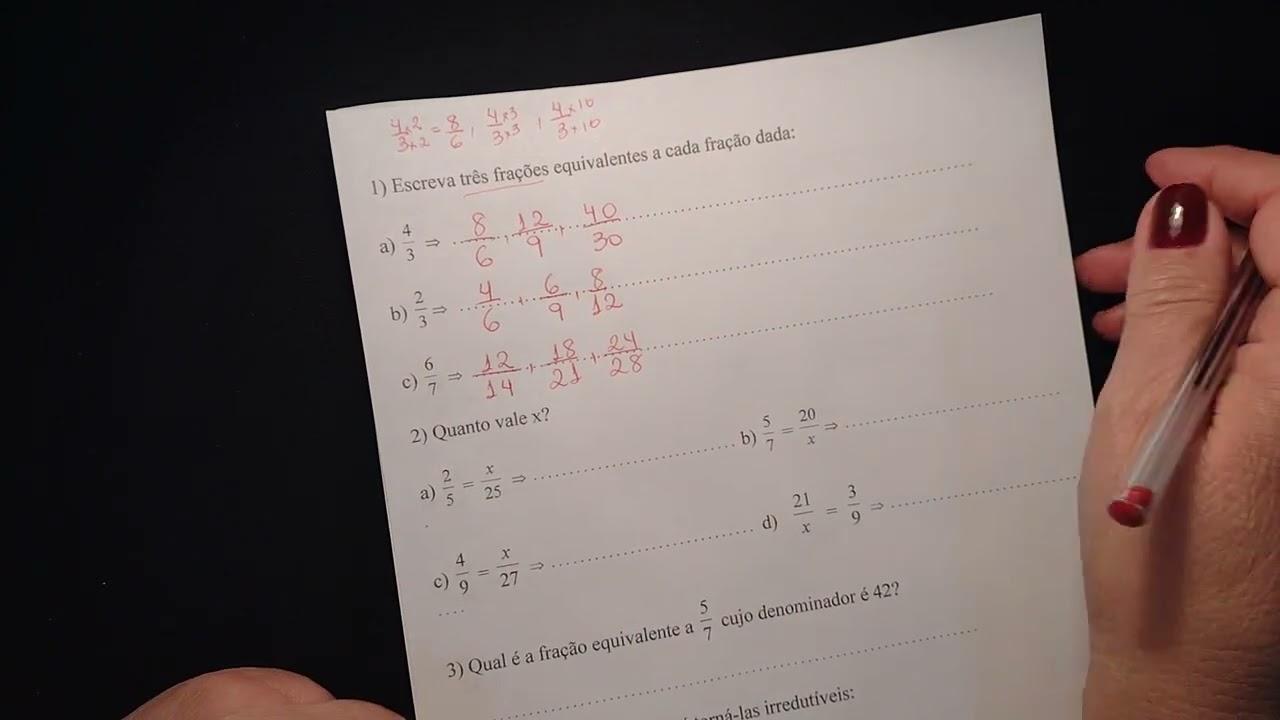 4×2/3×2 = 8/6, 4×3/3×3, 4×10/3×10
1) Escreva três frações equivalentes a cada fração dada:
a) 4/3 ⇒ 8/6, 12/9, 40/30
b) 2/3 ⇒ 4/6, 6/9, 8/12
c) 6/7 ⇒ 12/14, 18/21, 24/28
2) Quanto vale x?
a) 2/5 = x/25 ⇒ .......... b) 5/7 = 20/x ⇒ ..........
c) 4/9 = x/27 ⇒ .......... d) 21/x = 3/9 ⇒ ..........
3) Qual é a fração equivalente a 5/7 cujo denominador é 42?
irredutíveis: